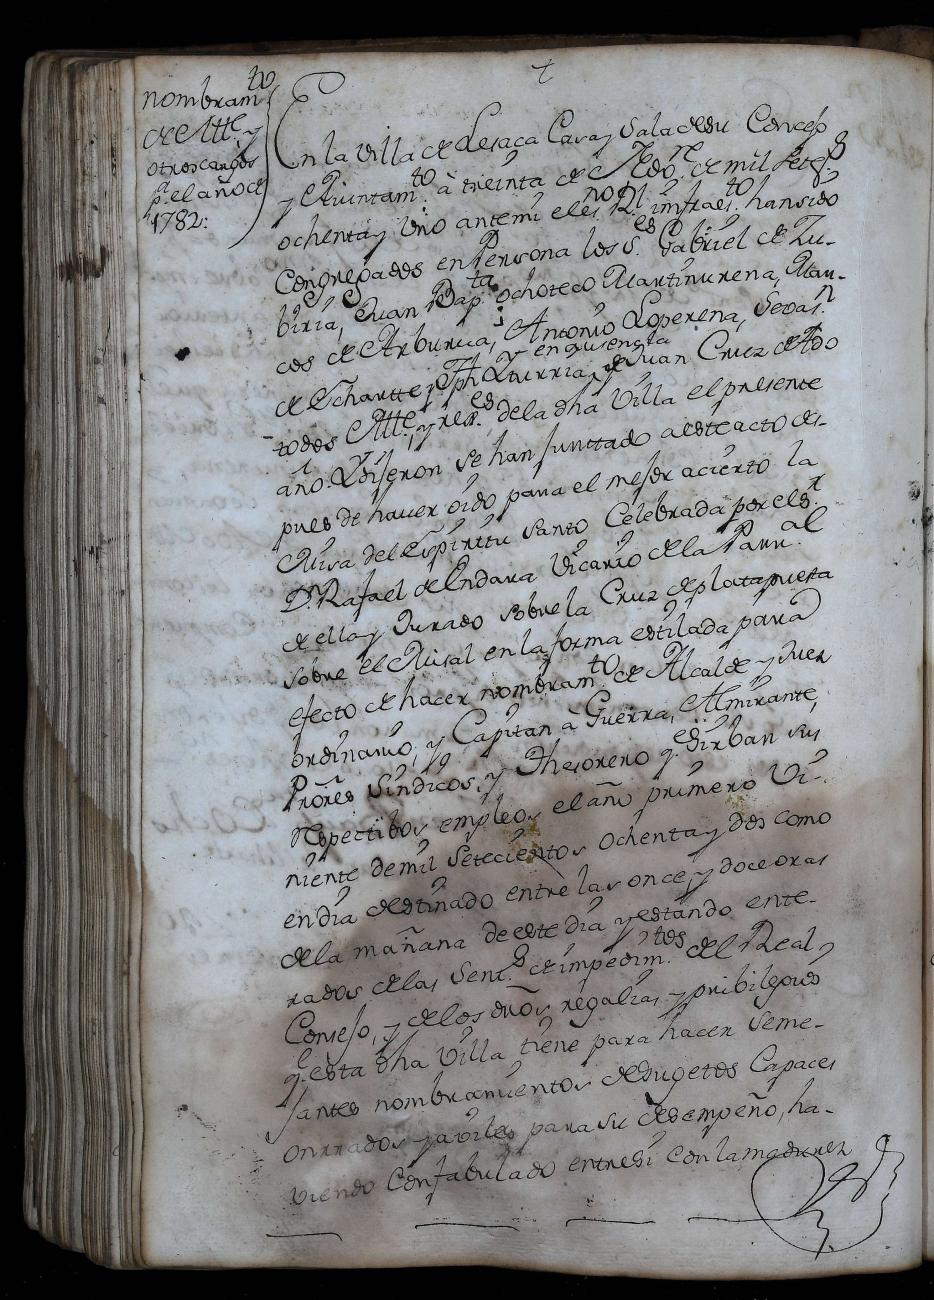 nombram.to
de Alle. y
otros cargos
p.a el año de
1782:
+
En la villa de Lesaca Casa y Sala de su Concejo
y Aiuntam.to à treinta de de mil setes.
ochenta y Uno antemi el es.no R.l imfraes.to han sido
Congregados en Persona los S.es Gabriel de Zu-
biria, Juan Bap.ta ochoteco Martinurena, Mar-
cos de Arburua, Antonio Loperena, Sevas.n
de Echartte, Jph Yturria, y Juan Cruz de Ado
en quiengta
todos Alle., y rex.es de la dha Villa el presente
año. Y dijeron se han junttado a este acto des-
pues de hauer oido para el mejor acierto la
Misa del Espiritu Santo Celebrada por el S.r
D. Rafael de Endara Vicario de la Parr.al
de ella y Jurado sobre la Cruz de plata puesta
sobre el Misal en la forma estilada para
efecto de hacer nombram.to de Alcalde y Juez
ordinario, y Capitan à Guerra, Almirante,
Prõres Sindicos, y Thesorero q.e sirban sus
Respectibos empleos el año primero Vi-
niente de mil Setecientos ochenta y dos como
en dia destinado entre las once, y doce oras
de la mañana de este dia y estando ente-
rados de las Senc.s de impedim.tos del Real
Consejo, y de los dros regalias, y pribilegios
q.e esta dha Villa tiene para hacer seme-
jantes nombramientos de Sugetos Capaces
onrrados y aviles para su desempeño, ha-
viendo Confabulado entre si con la madurez